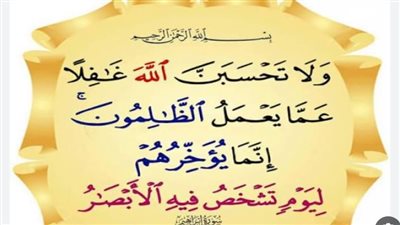 بسم الله الرحمن الرحيم
وَلَا تَحْسَبَنَّ ٱللَّهَ غَٰفِلًا
عَمَّا يَعْمَلُ ٱلظَّٰلِمُونَ ۚ
إِنَّمَا يُؤَخِّرُهُمْ
لِيَوْمٍ تَشْخَصُ فِيهِ ٱلْأَبْصَٰرُ
سورة إبراهيم